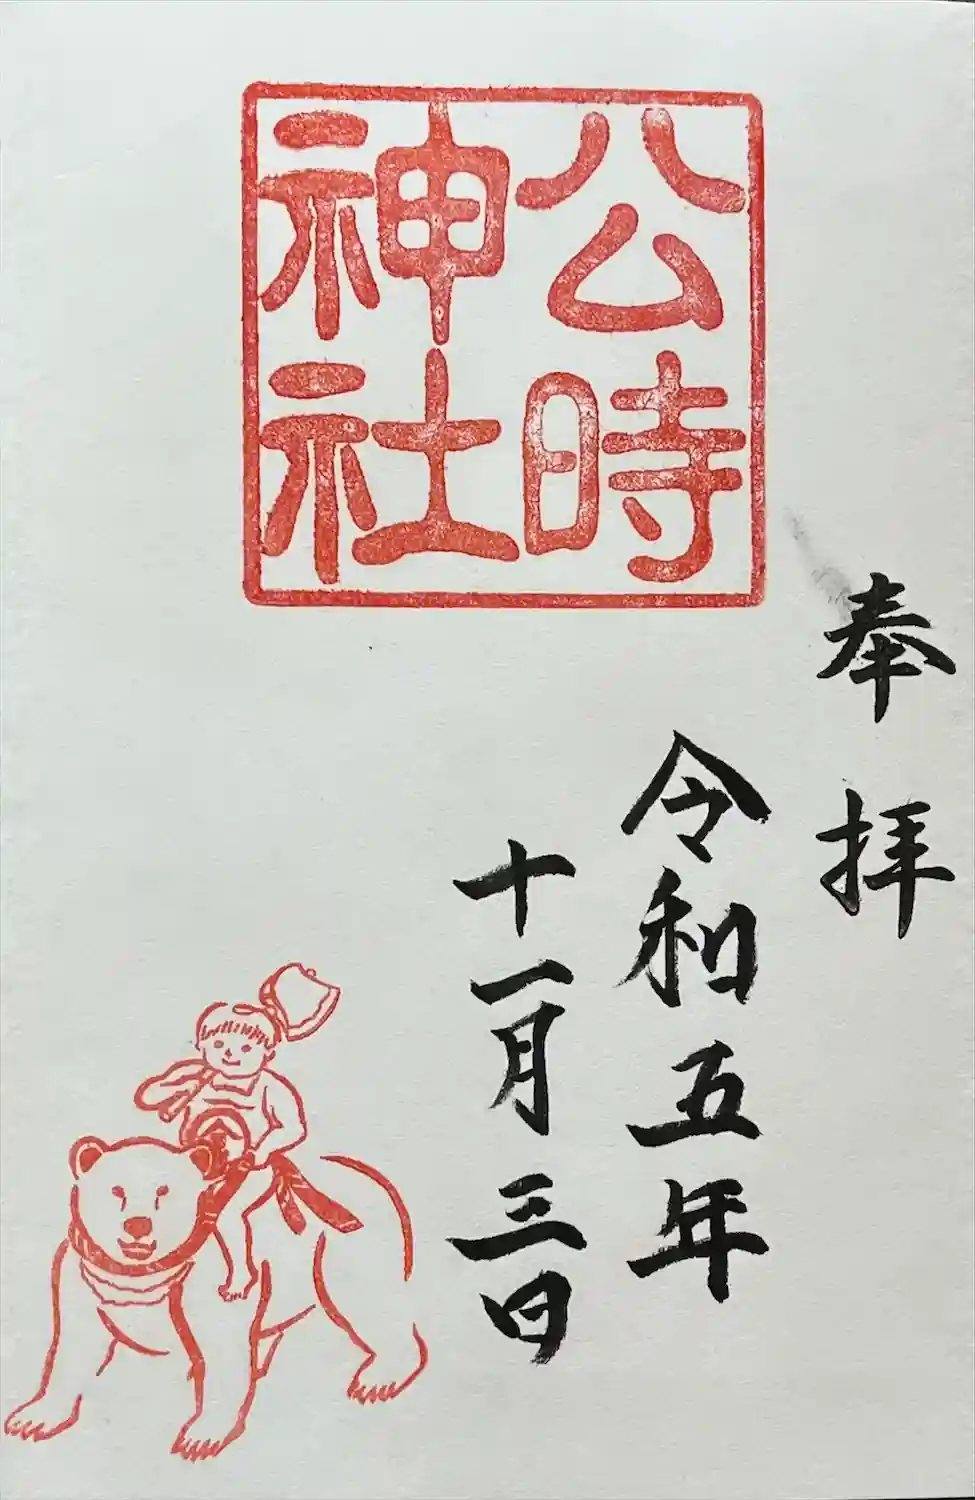 奉拝
公時
神社
令和五年
十一月三日